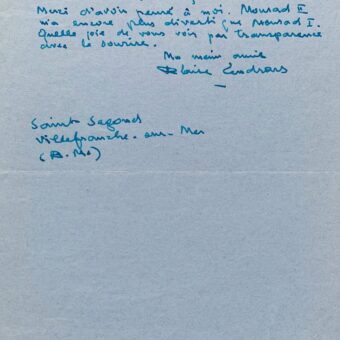 Merci d'avoir pensé à moi. Monsad II
m'a encore plus diverti que Monsad I.
Quelle joie de vous voir par transparence
avec le sourire.
Ma main amie
Blaise Cendrars
Saint-Segond
Villefranche-sur-Mer
(A.M.)